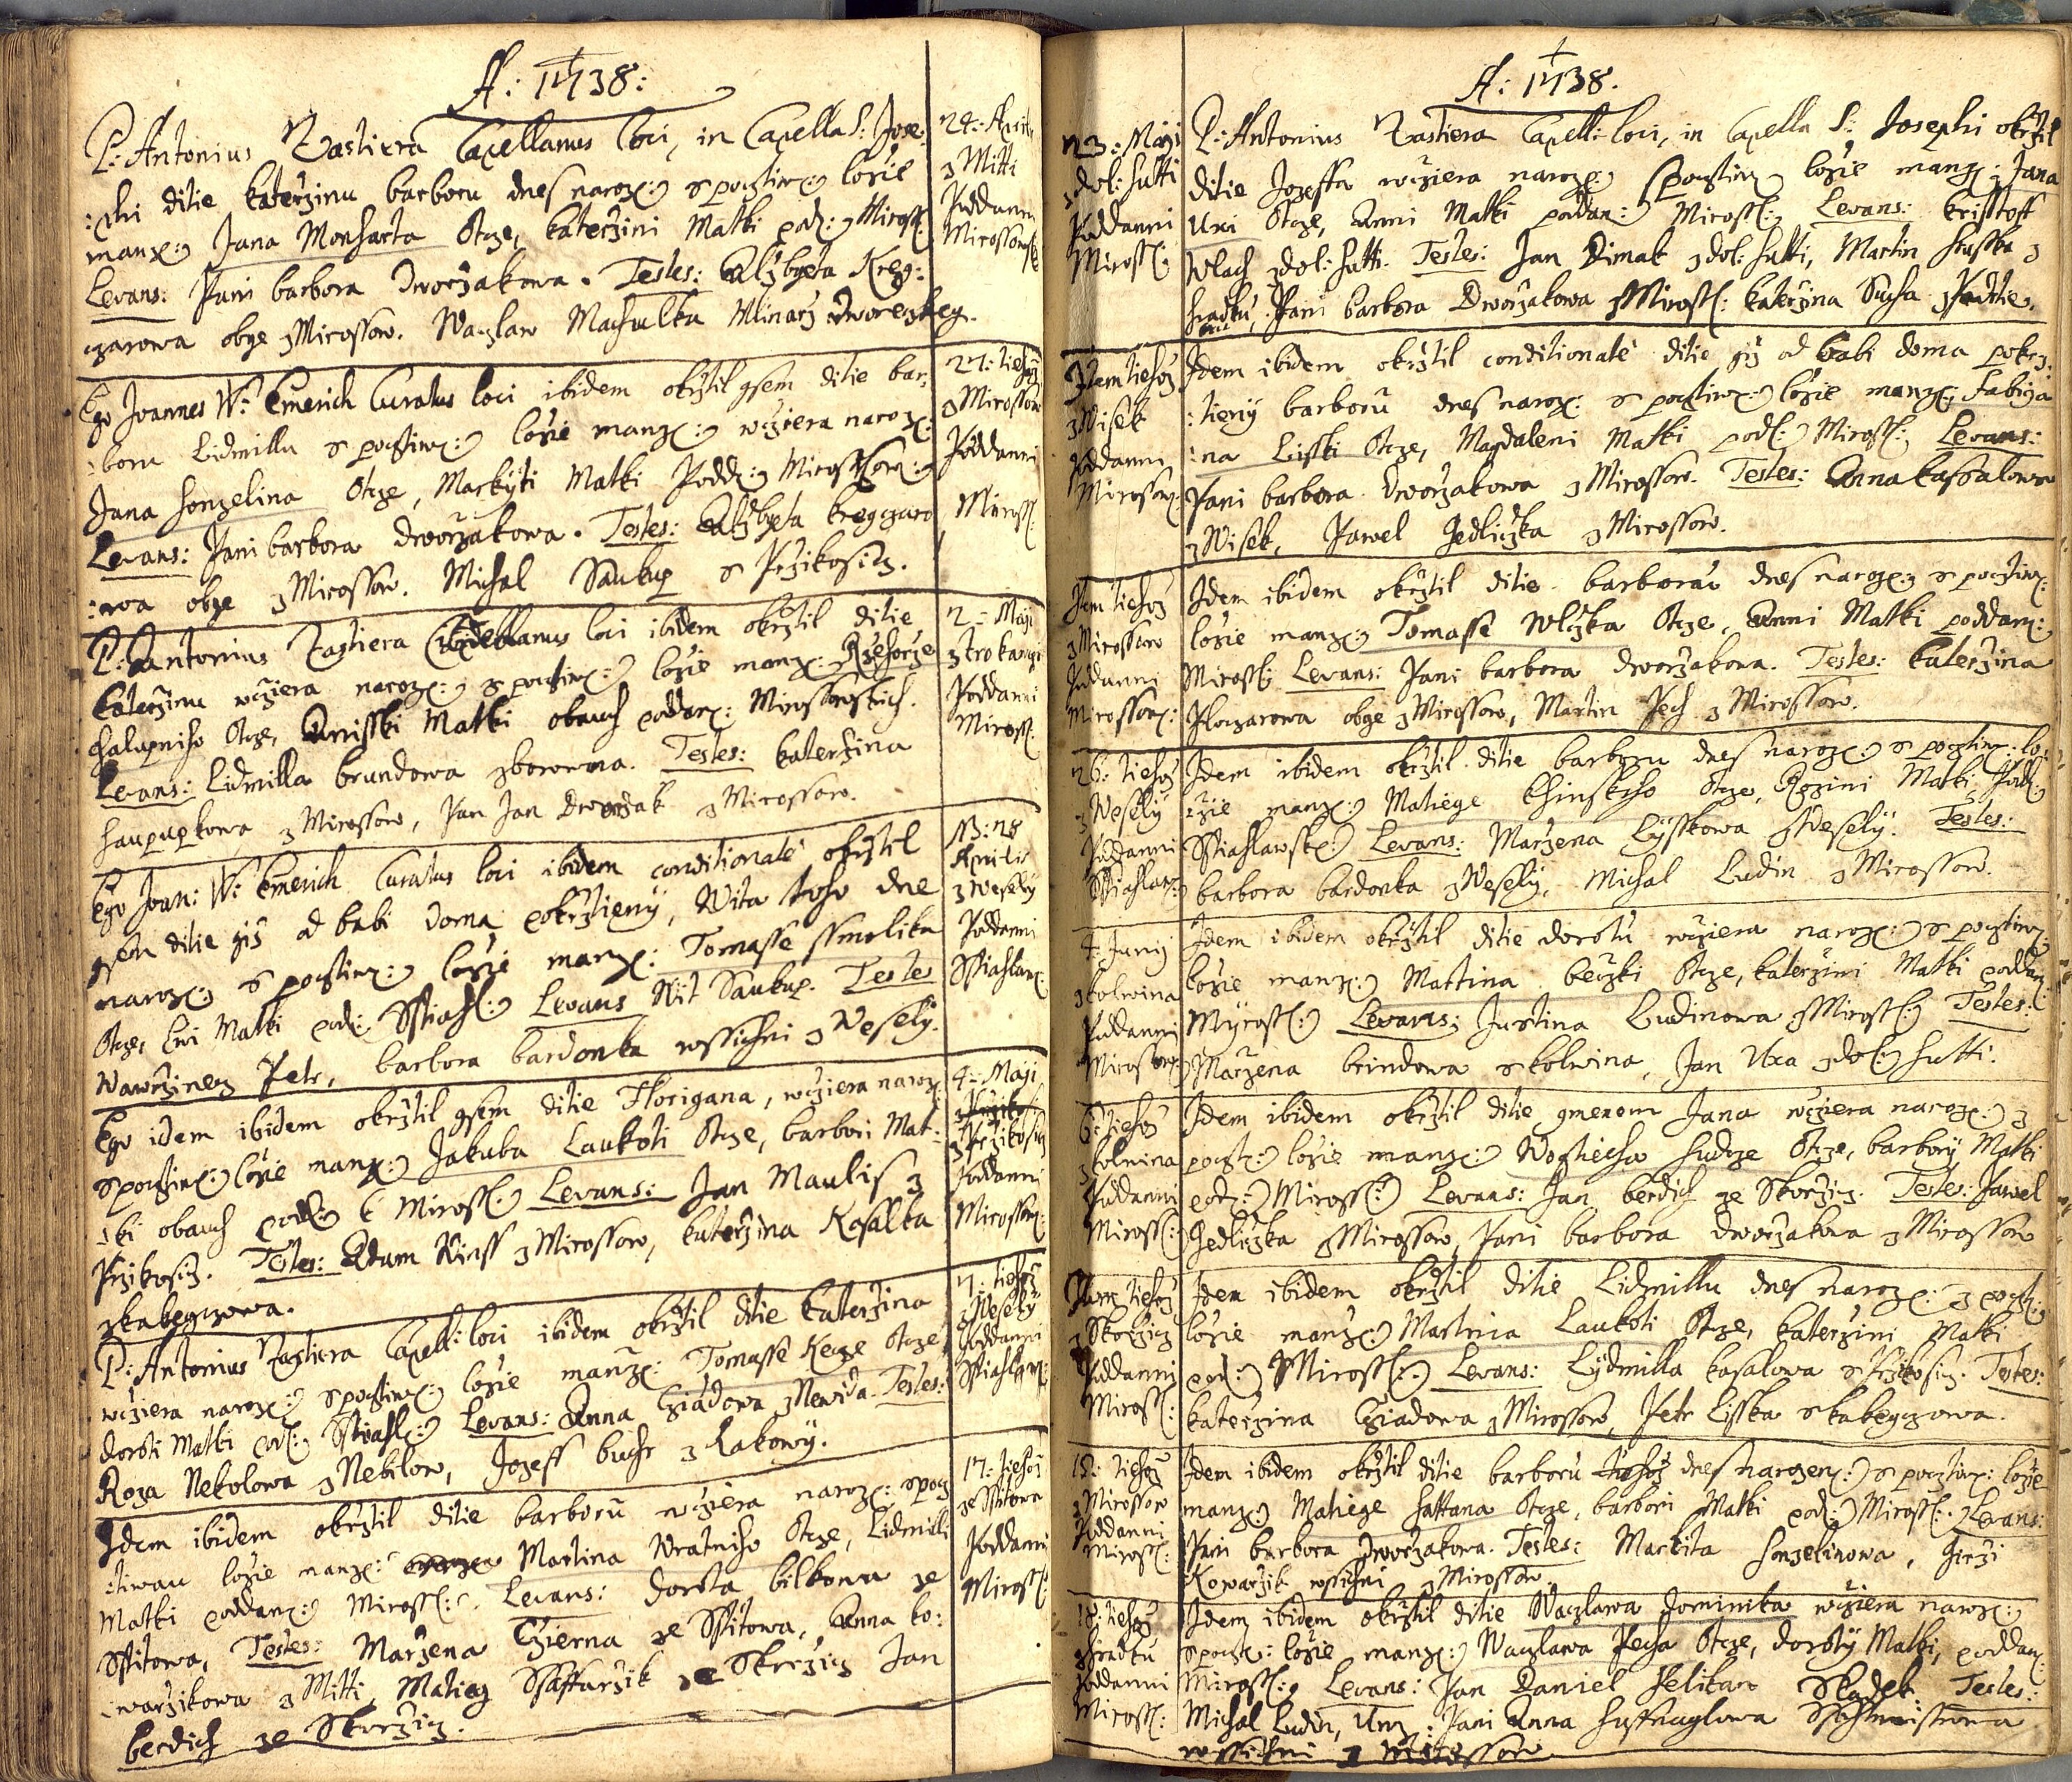 A: 1738:
P: Antonius Rastiera Capellanus loci, in Capella S: Jose:
:phi ditie katerzinu barboru dnes naroz: s pocztiw: lozie
manz: Jana Monharta Otcze, katerzini Matki pod: Miross:
Levans: Pani barbora Dworzakowa. Testes: Alzbyeta Kreg:
czarowa obge z Mirossow. Waczlaw Machulka Mlinarz Dworeczkeg.
24: Aprilis
z Mitti
Poddanni
Mirossowsk:
Ego Joannes W: Emerich Curatus loci ibidem okrztil gsem ditie bar:
:boru Lidmillu s pocztiw: lozie manz: wcziera naroz:
Jana honzelina Otcze, Markyti Matki Podd: Mirossow:
Levans: Pani barbora dworzakowa. Testes: Alzbyeta kregczaro
:wa obge z Mirossow. Michal Saukup s Przikosicz.
27: tiehoz
z Mirossow
Poddanni
Miross:
P: Antonius Rastiera Capellanus loci ibidem okrztil ditie
katerzinu wcziera naroz: s pocztiw: lozie manz: Rzehorze
Chalupniho Otcze, Anisski Matki obauch poddan: Mirossowskich.
Levans: Lidmilla brundowa z borowna. Testes: katerzina
haupupkowa z Mirossow, Pan Jan Dworzak z Mirossow.
2: Maji
z trokawcze
Poddanni
Miross:
Ego Joan: W: Emerich Curatus loci ibidem conditionaté okrztil
gsem ditie giz od babi doma pokrztieny, Wita toho dne
naroz: s pocztiw: lozie manz: Tomasse ssmolika
Otcze, Ewi Matki pod: Sstiahl: Levans Wit Saukup. Testes
Wawrzinecz Petr, barbora bardonka wssichni z Wesely.
NB: 28
Aprilis
z Wesely
Poddanni
Sstiahlaw:
Ego idem ibidem okrztil gsem ditie Florigana, wcziera naroz:
s pocztiw: lozie manz: Jakuba Laukoti Otcze, barbori Mat:
:ki obauch pod: k Miross: Levans: Jan Maulis z
Przikosicz. Testes: Adam Kinss z Mirossow, katerzina Kasalka
z kakegczowa.
4: Maji
z Przikosicz
Poddanni
Mirossow:
P: Antonius Rastiera Capell: loci ibidem okrztil ditie katerzina
wcziera naroz: s pocztiw: lozie manz: Tomasse Kecze Otcze,
doroti Matki pod: Sstiahl: Levans: Anna Cziadowa z Newida. Testes:
Roza Nekolowa z Nebilow, Jozeff buchr z Rakowy.
7: tiehoz
z Wesely
Poddanni
Sstiahlaw:
Idem ibidem okrztil ditie barboru wcziera naroz: s pocz
:tiwau lozie manz: Martina Wratniho Otcze, Lidmilli
Matki poddan: Miross: Levans: dorota bilkowa ze
Sstitowa, Testes: Marzena Czierna ze Sstitowa, Anna ko:
:warzikowa z Mitti, Matieg Ssaffarzik ze Skorzicz Jan
berdich ze Skorzicz.
17: tiehoz
ze Sstitowa
Poddanni
Miross:
A: 1738.
23: Maji
z dol: hutti
Poddanni
Miross:
P: Antonius Rastiera Capell: loci, in Capella S: Josephi okrztil
ditie Jozeffa wcziera naroz: s pocztiw lozie manz: Jana
Uxi Otcze, Anni Matki poddan: Miross: Levans: kristoff
Wlach z dol: hutti. Testes: Jan Dimak z dol: hutti, Martin hruska z
hradku, Pani barbora Dworzakowa z Miross: katerzina Sucha z Padrtie.
Item tiehoz
z Wisek
Poddanni
Mirossow:
Idem ibidem okrztil conditionaté ditie giz od babi doma pokrz:
:tieny barboru dnes naroz: s pocztiw: lozie manz: Fabigá
:na Lisski Otcze, Magdaleni Matki pod: Miross: Levans:
Pani barbora Dworzakowa z Mirossow. Testes: Anna kassalowa
z Wisek, Pawel Jedliczka z Mirossow.
Item tiehoz
z Mirossow
Poddanni
Mirossow:
Idem ibidem okrztil ditie barboru dnes naroz: s pocztiw:
lozie manz: Tomasse Wlczka Otcze, Anni Matki poddan:
Miross: Levans: Pani barbora dworzakowa. Testes: katerzina
Ploczarowa obge z Mirossow, Martin Pech z Mirossow.
26: tiehoz
z Wesely
Poddanni
Sstiahlaw:
Idem ibidem okrztil ditie barboru dnes naroz: s pocztiw: lo:
:zie manz: Matiege Chinskiho Otcze, Rozini Matki, Pod:
Sstiahlawsk: Levans: Marzena Lysskowa z Wesely. Testes:
barbora bardonka z Wesely, Michal Ludin z Mirossow.
4: Junij
z kolwina
Poddanni
Mirossow:
Idem ibidem okrztil ditie dorotu wcziera naroz: s pocztiw
lozie manz: Martina beczki Otcze, katerzini Matki poddan
Myross: Levans: Justina Ludinowa z Miross: Testes:
Marzena brindowa s kolwina, Jan Uxa z dol: hutti.
6: tiehoz
z kolwina
Poddanni
Miross:
Idem ibidem okrztil ditie gmenem Jana wcziera naroz: z
poczt: lozie manz: Wogtiecha hudcze Otcze, barbory Matki
pod: Miross: Levans: Jan berdich ze Skorzicz. Testes: Pawel
Jedliczka z Mirossow, Pani barbora dworzakowa z Mirossow
Item tiehoz
z Skorzicz
Poddanni
Miross:
Idem ibidem okrztil ditie Lidmillu dnes naroz: z poczt:
lozie manz: Martina Laukoti Otcze, katerzini Matki
pod: Miross: Levans: Lydmilla kasalowa s Przikosicz. Testes:
katerzina Cziadowa z Mirossow, Petr Lisska s kakegczowa.
15: tiehoz
z Mirossow
Poddanni
Miross:
Idem ibidem okrztil ditie barboru tiehoz dnes narozen: s pocztiw: lozie
manz: Matiege hattana Otcze, barbori Matki pod: Miross: Levans:
Pani barbora Dworzakowa. Testes: Markita honzelinowa, Jirzi
Kowarzik wssichni z Mirossow.
18: tiehoz
z hradku
Poddanni
Miross:
Idem ibidem okrztil ditie Waczlawa Dominika wcziera naroz:
s poczt: lozie manz: Waczlawa Pecha Otcze, doroty Matki, poddan:
Miross: Levans: Pan Daniel Pelikan Testes:
Michal Ludin, Pani Anna
wssichni z Mirossow